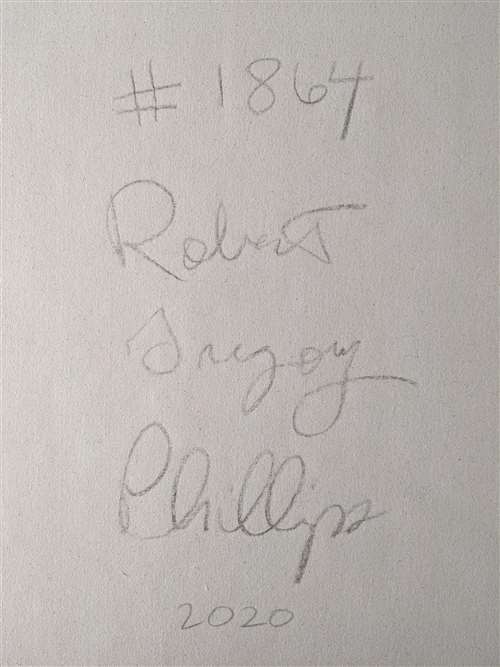 #1864
Robert
Gregory
Phillips
2020